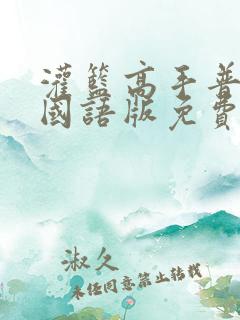 灌籃高手普
國語版免費
淑久
未任同意禁止转载